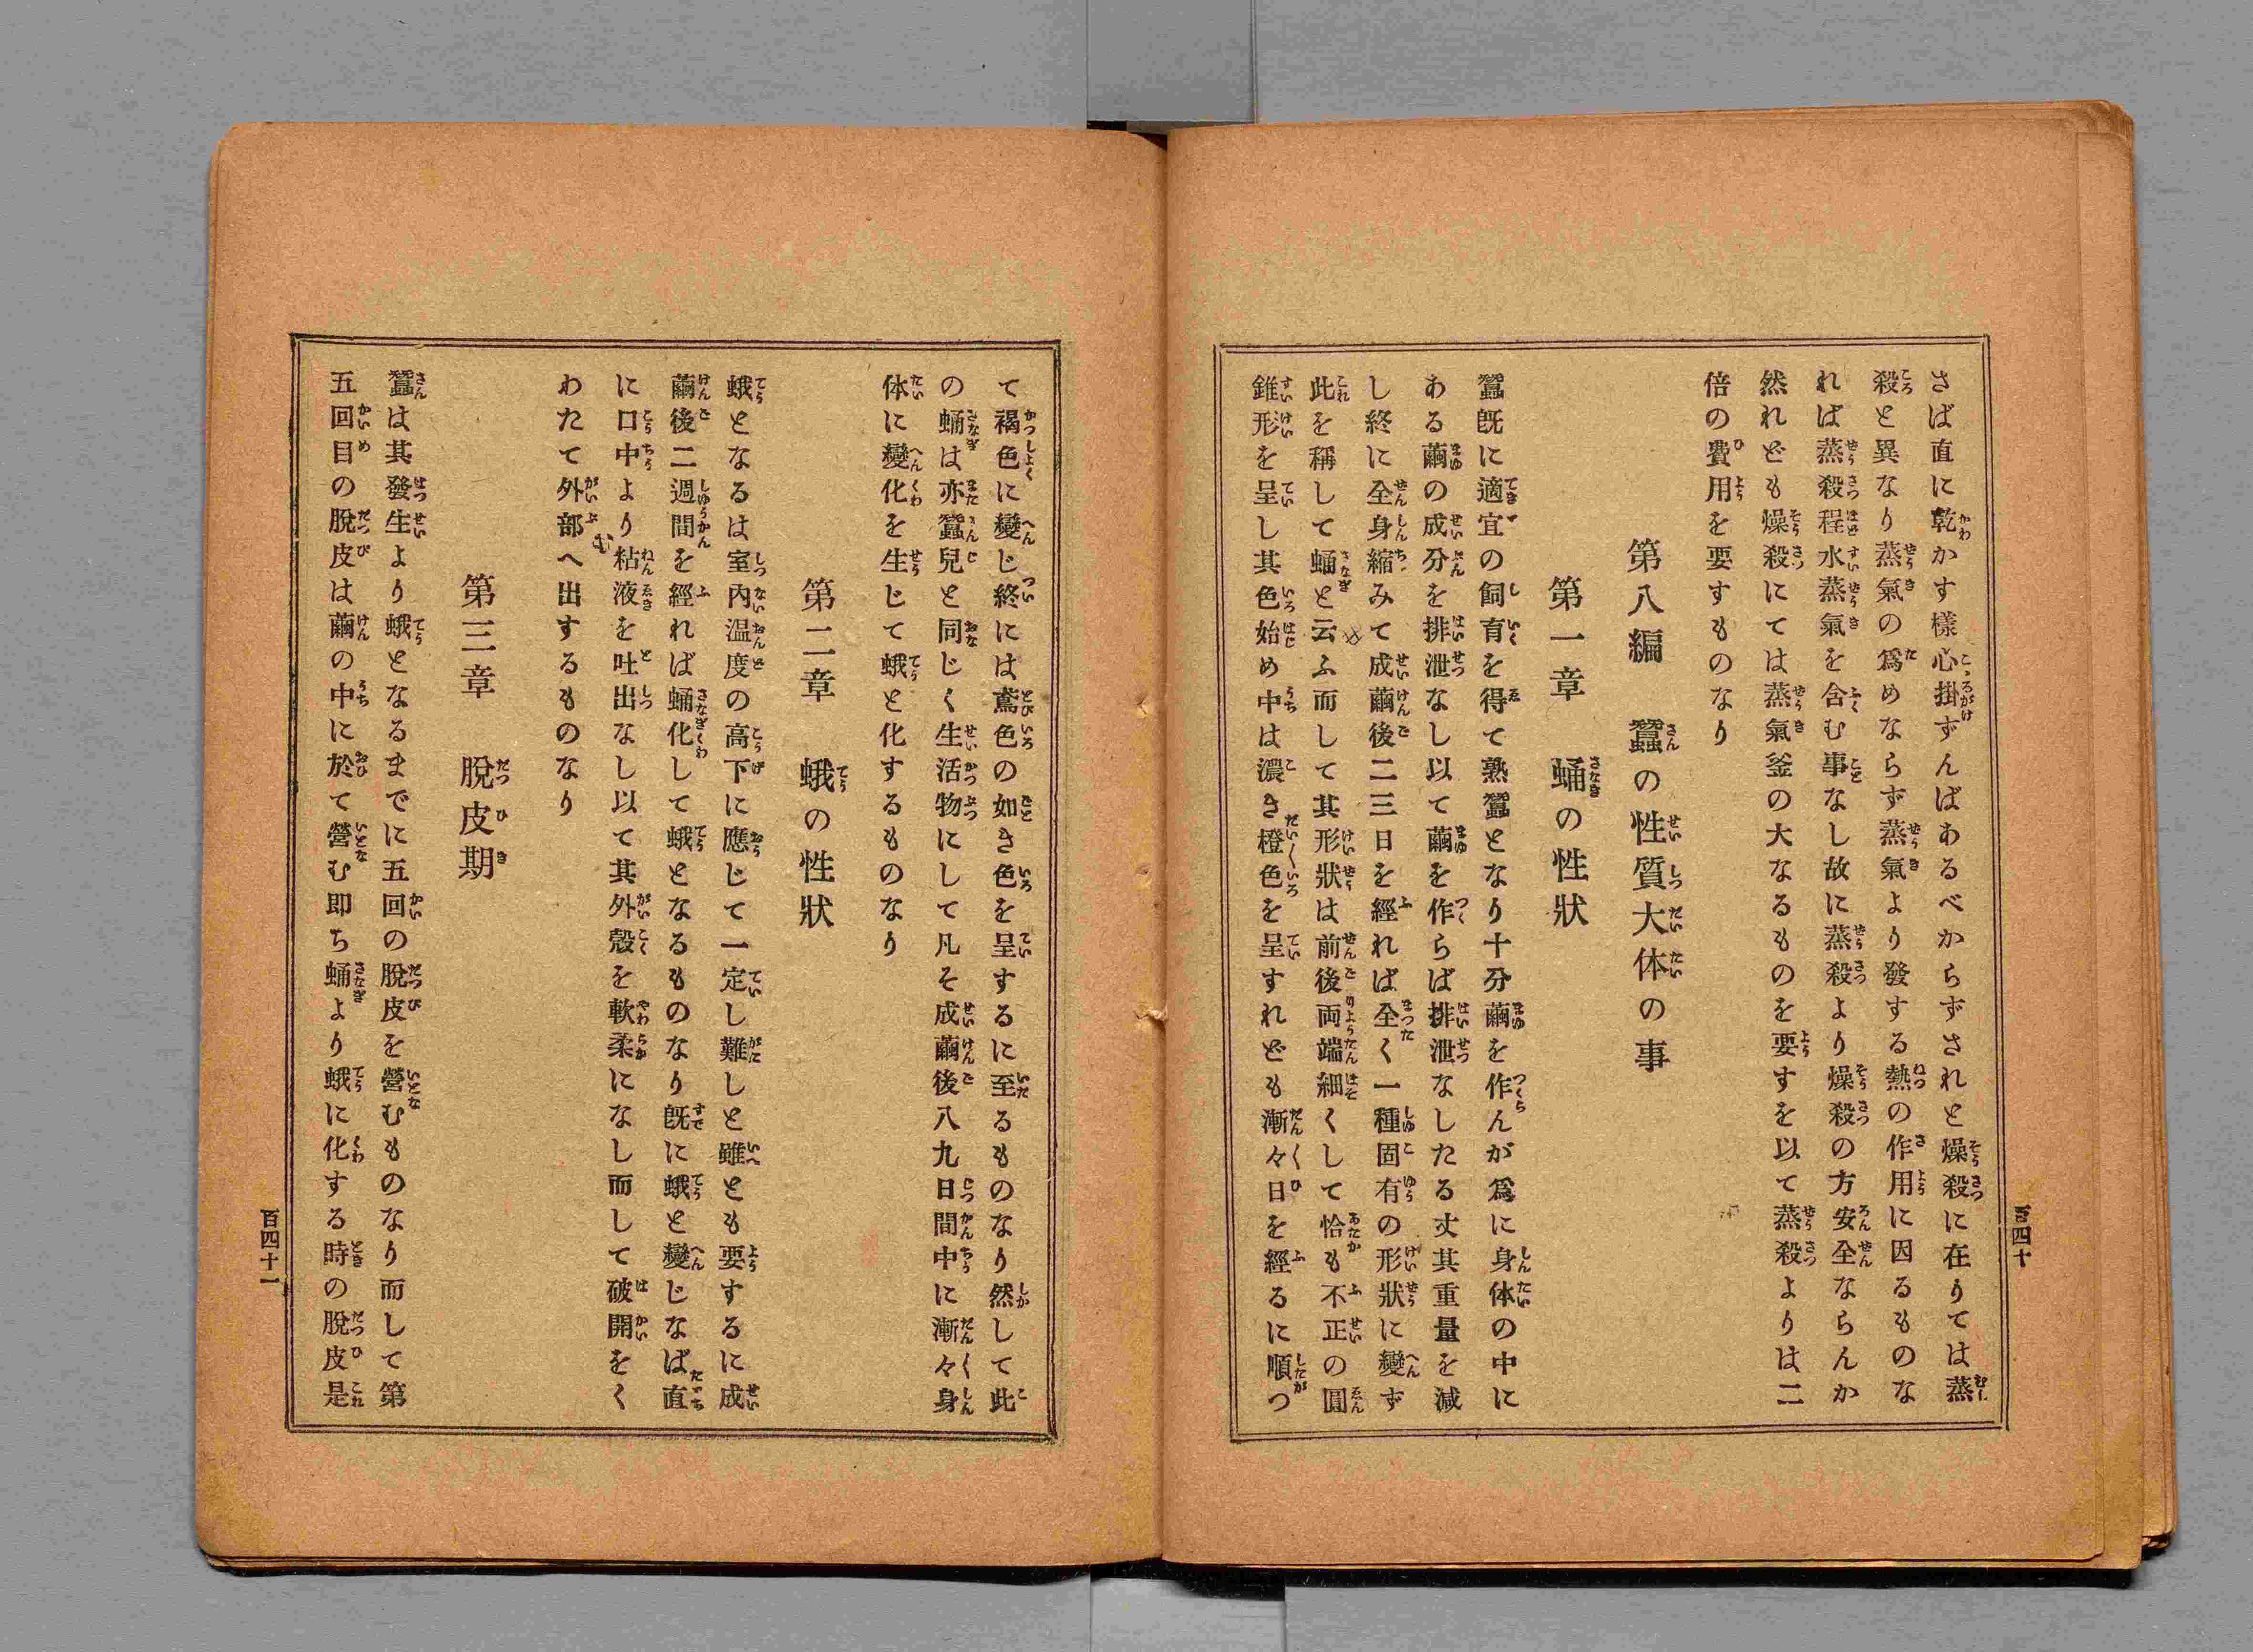 さば直に乾かす樣心掛ずんばあるべからずされと燥殺に在りては蒸
殺と異なり蒸氣の爲めならず蒸氣より發する熱の作用に因るものな
れば蒸殺程水蒸氣を含む事なし故に蒸殺より燥殺の方安全ならんか
然れども燥殺にては蒸氣釜の大なるものを要すを以て蒸殺よりは二
倍の費用を要すものなり
第八編 蠶の性質大体の事
第一章 蛹の性狀
蠶旣に適宜の飼育を得て熟蠶となり十分繭を作んが爲に身体の中に
ある繭の成分を排泄なし以て繭を作らば排泄なしたる丈其重量を減
し終に全身縮みて成繭後二三日を經れば全く一種固有の形狀に變ず
此を稱して蛹と云ふ而して其形狀は前後両端細くして恰も不正の圓
錐形を呈し其色始め中は濃き橙色を呈すれども漸々日を經るに順つ
百四十
て褐色に變じ終には鳶色の如き色を呈するに至るものなり然して此
の蛹は亦蠶兒と同じく生活物にして凡そ成繭後八九日間中に漸々身
体に變化を生じて蛾と化するものなり
第二章 蛾の性狀
蛾となるは室內温度の高下に應じて一定し難しと雖とも要するに成
繭後二週間を經れば蛹化して蛾となるものなり旣に蛾と變じなば直
に口中より粘液を吐出なし以て其外殼を軟柔になし而して破開をく
わたて外部へ出するものなり
む
第三章 脫皮期
蠶は其發生より蛾となるまでに五回の脫皮を營むものなり而して第
五回目の脫皮は繭の中に於て營む即ち蛹より蛾に化する時の脫皮是
百四十一